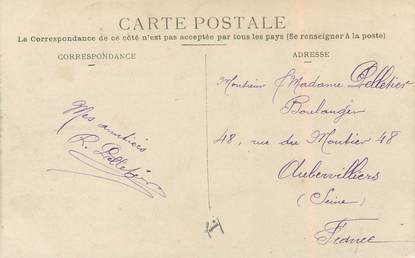 CARTE POSTALE
La Correspondance de ce côté n'est pas acceptée par tous les pays (Se renseigner à la poste)
CORRESPONDANCE
ADRESSE
Monsieur & Madame Pelletier
Boulanger
48, rue du Moutier 48
Aubervilliers
(Seine)
France
Mes amitiés
R. Pelletier